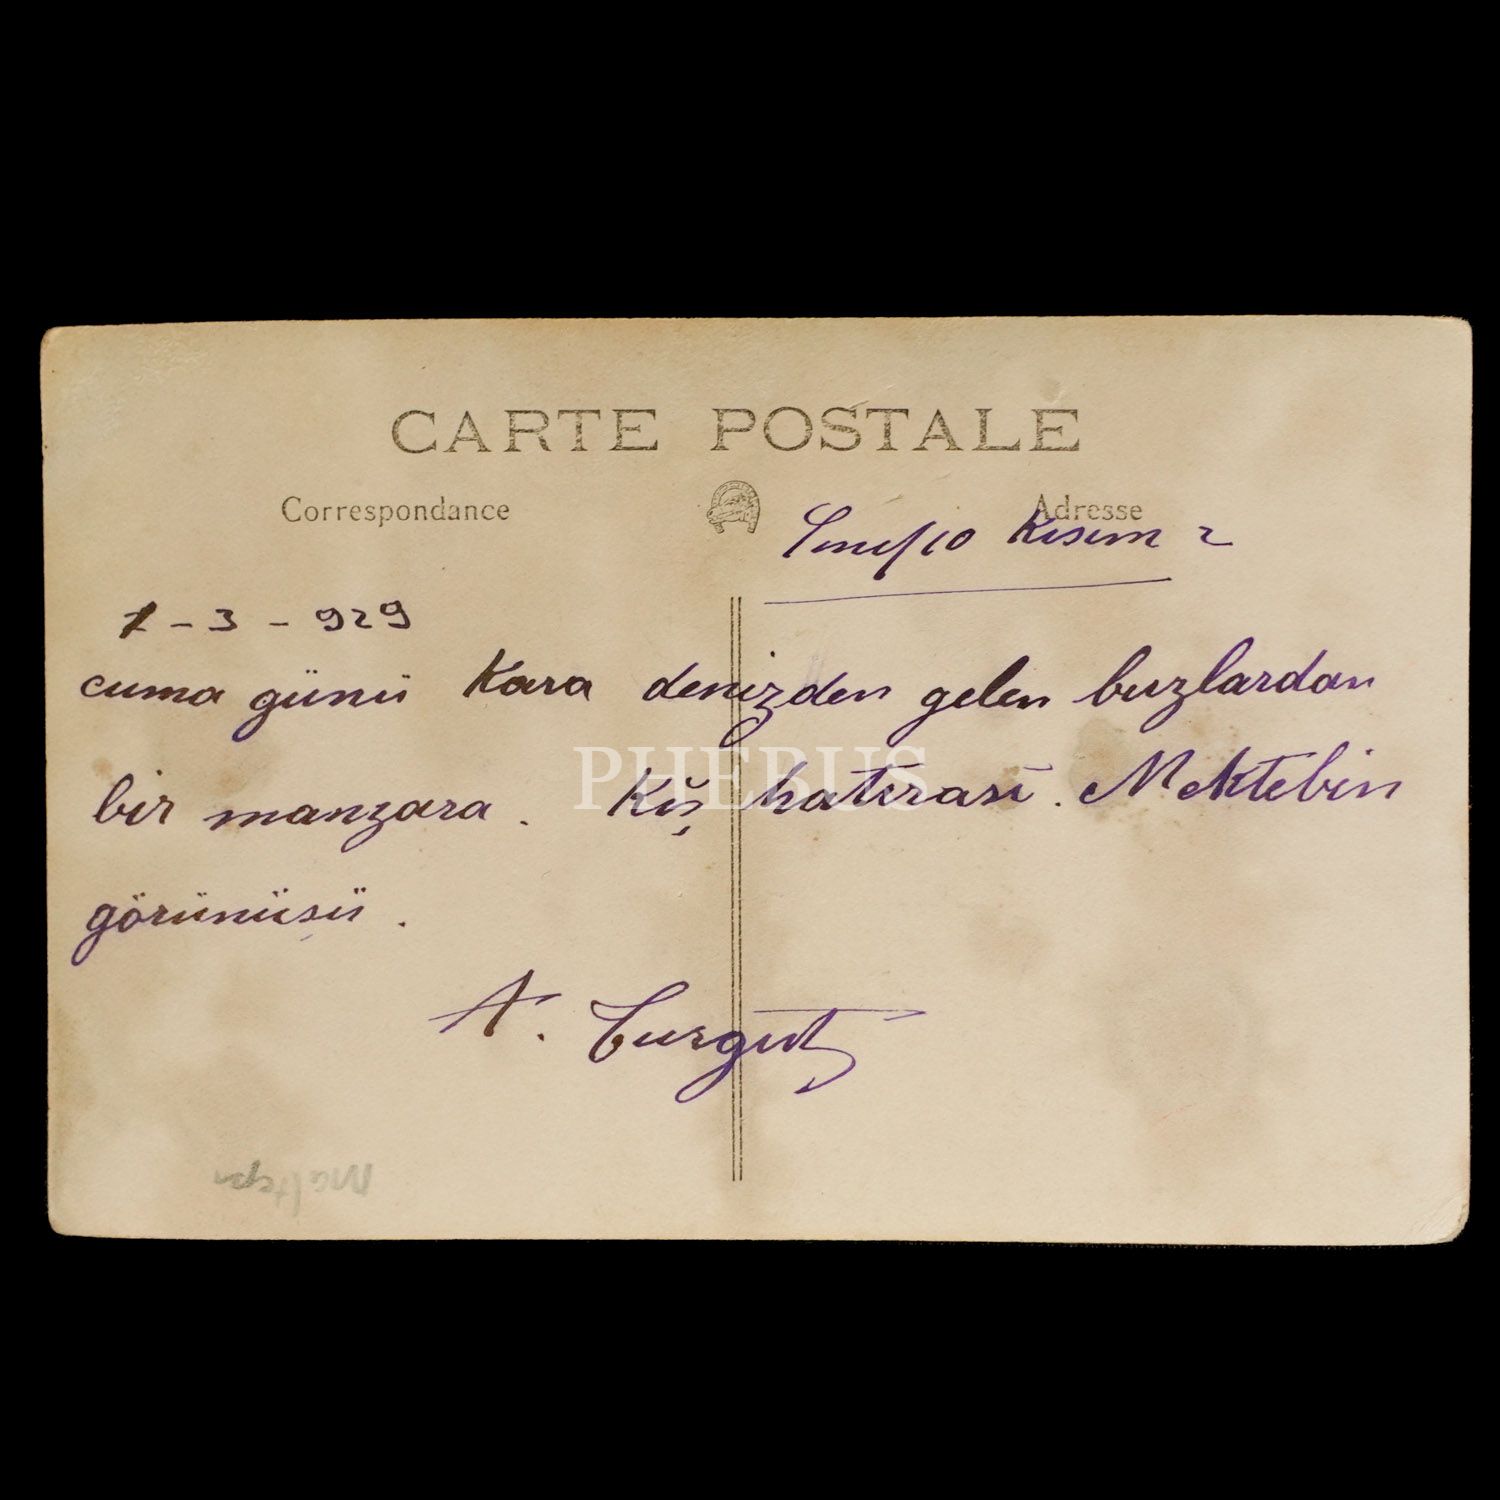 CARTE POSTALE
Correspondance
Adresse
Sınıf 10 Kısım 2
1-3-929
cuma günü Kara denizden gelen buzlardan
bir manzara. Kış hatırası. Mektebin
görünüşü.
A. Turgut
PHEBUS